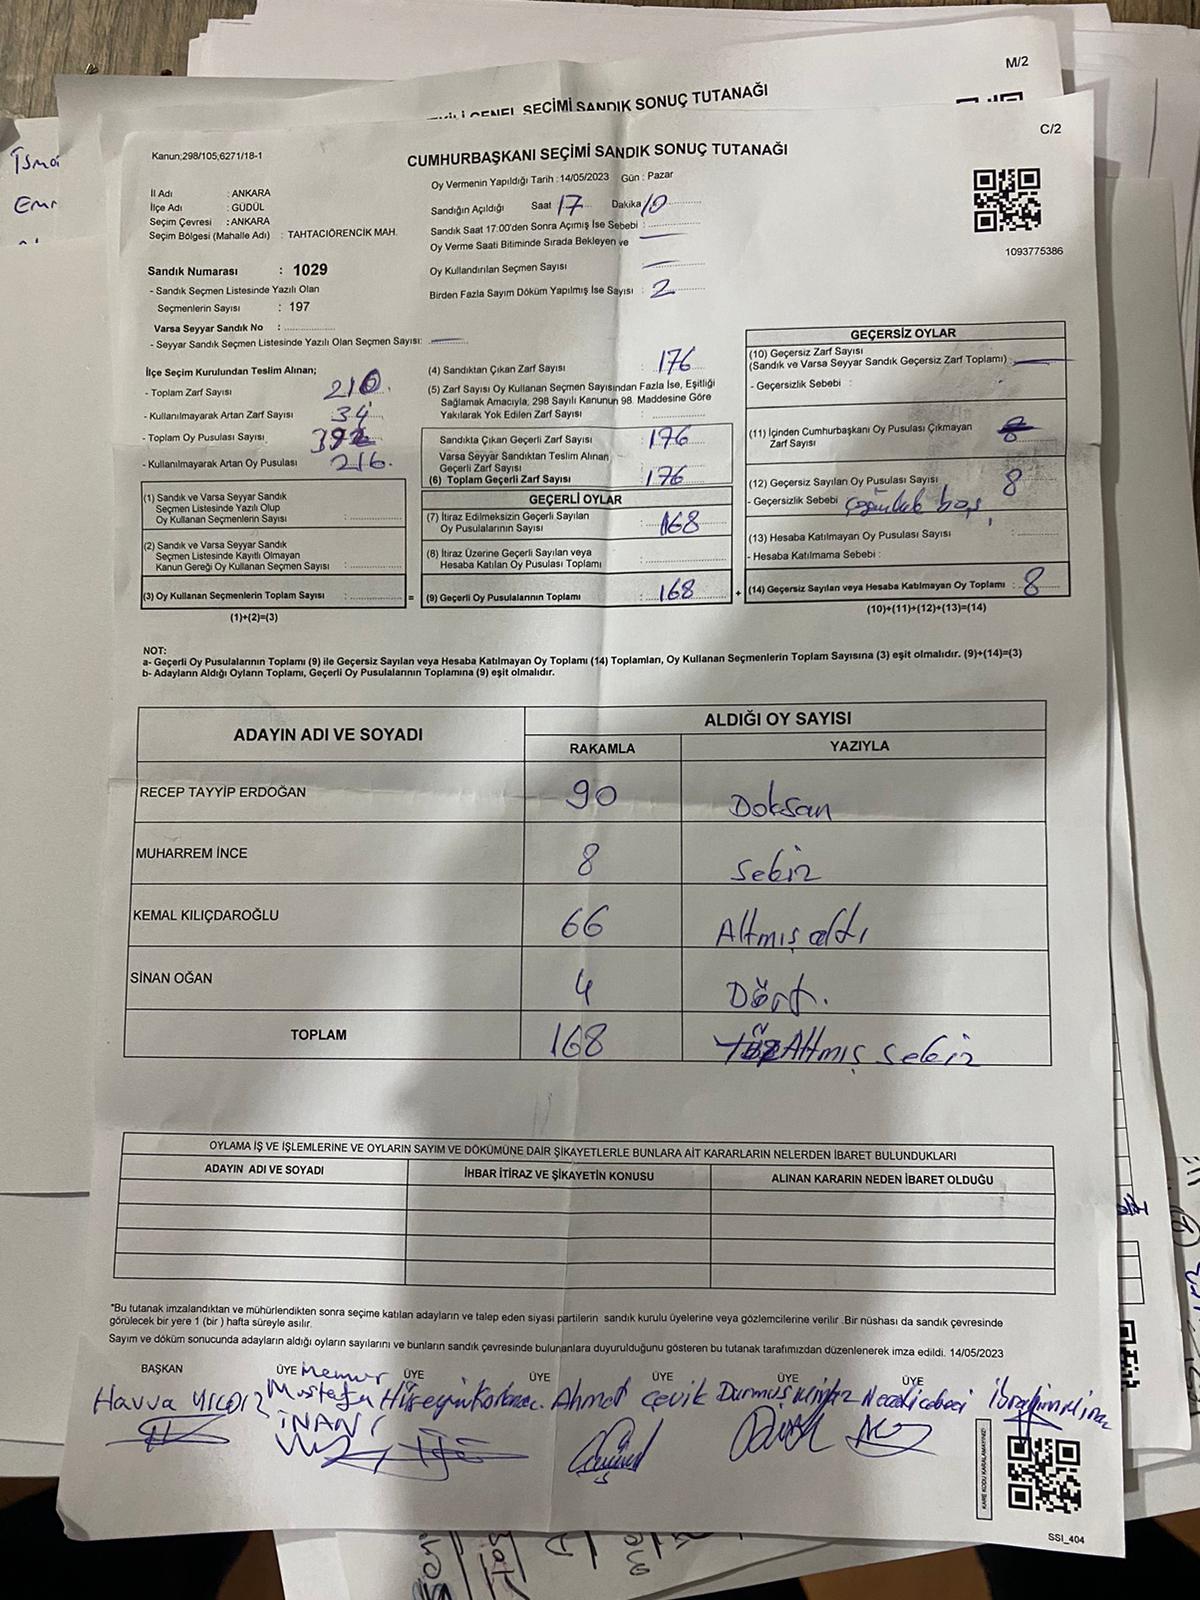 M/2
GENEL SEÇİMİ SANDIK SONUÇ TUTANAĞI
C/2
Kanun;298/105,6271/18-1
CUMHURBAŞKANI SEÇİMİ SANDIK SONUÇ TUTANAĞI
İl Adı : ANKARA
İlçe Adı : GÜDÜL
Seçim Çevresi : ANKARA
Seçim Bölgesi (Mahalle Adı) : TAHTACIÖRENCİK MAH.
Oy Vermenin Yapıldığı Tarih : 14/05/2023 Gün : Pazar
Sandığın Açıldığı Saat 17 Dakika 10
Sandık Saat 17:00'den Sonra Açımış İse Sebebi :
Oy Verme Saati Bitiminde Sırada Bekleyen ve
Oy Kullandırılan Seçmen Sayısı :
Birden Fazla Sayım Döküm Yapılmış İse Sayısı : 2
1093775386
Sandık Numarası : 1029
- Sandık Seçmen Listesinde Yazılı Olan
Seçmenlerin Sayısı : 197
Varsa Seyyar Sandık No :
- Seyyar Sandık Seçmen Listesinde Yazılı Olan Seçmen Sayısı:
İlçe Seçim Kurulundan Teslim Alınan;
- Toplam Zarf Sayısı 210
- Kullanılmayarak Artan Zarf Sayısı 34
- Toplam Oy Pusulası Sayısı 392
- Kullanılmayarak Artan Oy Pusulası 216
(1) Sandık ve Varsa Seyyar Sandık
Seçmen Listesinde Yazılı Olup
Oy Kullanan Seçmenlerin Sayısı :
(2) Sandık ve Varsa Seyyar Sandık
Seçmen Listesinde Kayıtlı Olmayan
Kanun Gereği Oy Kullanan Seçmen Sayısı :
(3) Oy Kullanan Seçmenlerin Toplam Sayısı : =
(1)+(2)=(3)
(4) Sandıktan Çıkan Zarf Sayısı : 176
(5) Zarf Sayısı Oy Kullanan Seçmen Sayısından Fazla İse, Eşitliği
Sağlamak Amacıyla; 298 Sayılı Kanunun 98. Maddesine Göre
Yakılarak Yok Edilen Zarf Sayısı :
Sandıkta Çıkan Geçerli Zarf Sayısı : 176
Varsa Seyyar Sandıktan Teslim Alınan
Geçerli Zarf Sayısı
(6) Toplam Geçerli Zarf Sayısı : 176
GEÇERLİ OYLAR
(7) İtiraz Edilmeksizin Geçerli Sayılan
Oy Pusulalarının Sayısı : 168
(8) İtiraz Üzerine Geçerli Sayılan veya
Hesaba Katılan Oy Pusulası Toplamı :
(9) Geçerli Oy Pusulalarının Toplamı : 168 +
GEÇERSİZ OYLAR
(10) Geçersiz Zarf Sayısı
(Sandık ve Varsa Seyyar Sandık Geçersiz Zarf Toplamı) :
- Geçersizlik Sebebi :
(11) İçinden Cumhurbaşkanı Oy Pusulası Çıkmayan
Zarf Sayısı : 8
(12) Geçersiz Sayılan Oy Pusulası Sayısı : 8
- Geçersizlik Sebebi : boş
(13) Hesaba Katılmayan Oy Pusulası Sayısı :
- Hesaba Katılmama Sebebi :
(14) Geçersiz Sayılan veya Hesaba Katılmayan Oy Toplamı : 8
(10)+(11)+(12)+(13)=(14)
NOT:
a- Geçerli Oy Pusulalarının Toplamı (9) ile Geçersiz Sayılan veya Hesaba Katılmayan Oy Toplamı (14) Toplamları, Oy Kullanan Seçmenlerin Toplam Sayısına (3) eşit olmalıdır. (9)+(14)=(3)
b- Adayların Aldığı Oyların Toplamı, Geçerli Oy Pusulalarının Toplamına (9) eşit olmalıdır.
ADAYIN ADI VE SOYADI
ALDIĞI OY SAYISI
RAKAMLA YAZIYLA
RECEP TAYYİP ERDOĞAN 90 Doksan
MUHARREM İNCE 8 Sekiz
KEMAL KILIÇDAROĞLU 66 Altmış altı
SİNAN OĞAN 4 Dört.
TOPLAM 168 Yüz Altmış sekiz
OYLAMA İŞ VE İŞLEMLERİNE VE OYLARIN SAYIM VE DÖKÜMÜNE DAİR ŞİKAYETLERLE BUNLARA AİT KARARLARIN NELERDEN İBARET BULUNDUKLARI
ADAYIN ADI VE SOYADI İHBAR İTİRAZ VE ŞİKAYETİN KONUSU ALINAN KARARIN NEDEN İBARET OLDUĞU
*Bu tutanak imzalandıktan ve mühürlendikten sonra seçime katılan adayların ve talep eden siyasi partilerin sandık kurulu üyelerine veya gözlemcilerine verilir .Bir nüshası da sandık çevresinde
görülecek bir yere 1 (bir ) hafta süreyle asılır.
Sayım ve döküm sonucunda adayların aldığı oyların sayılarını ve bunların sandık çevresinde bulunanlara duyurulduğunu gösteren bu tutanak tarafımızdan düzenlenerek imza edildi. 14/05/2023
BAŞKAN ÜYE Memur ÜYE ÜYE ÜYE ÜYE ÜYE
Havva YILDIZ Mustafa İNAN Hüseyin Ahmet Çevik Durmuş Necati İbrahim
KARE KODU KARALAMAYINIZ!
SSI_404